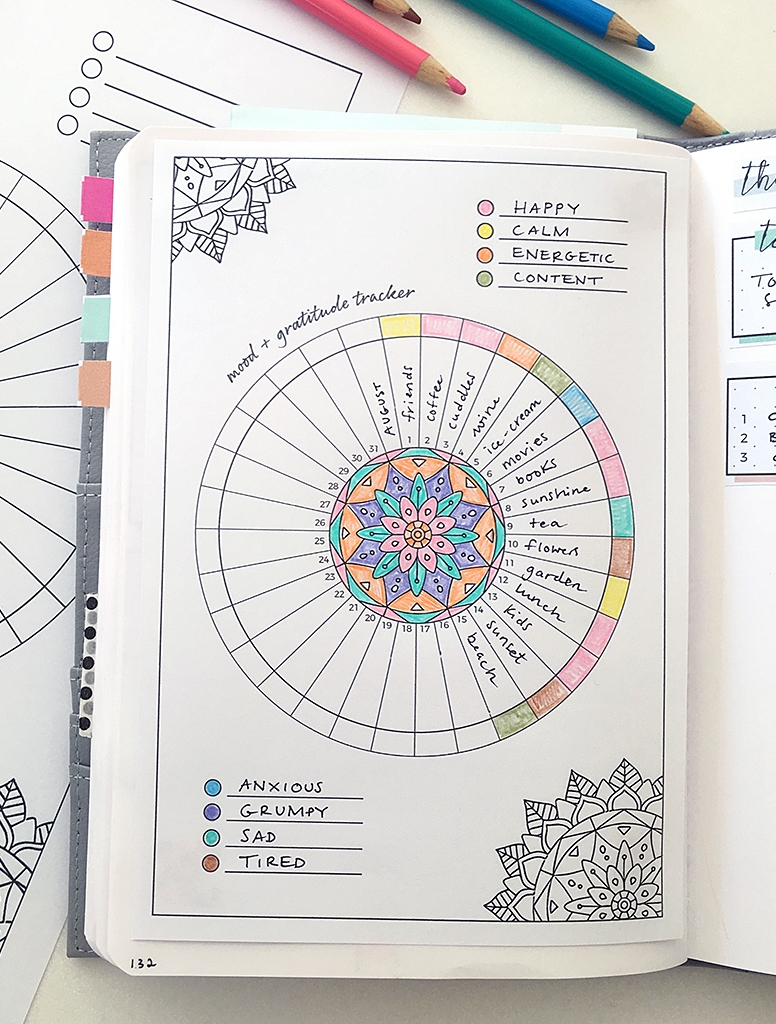 HAPPY
CALM
ENERGETIC
CONTENT
mood + gratitude tracker
AUGUST
friends
coffee
cuddles
wine
ice-cream
movies
books
sunshine
tea
flowers
garden
lunch
kids
sunset
beach
1
2
3
4
5
6
7
8
9
10
11
12
13
14
15
16
17
18
19
20
21
22
23
24
25
26
27
28
29
30
31
ANXIOUS
GRUMPY
SAD
TIRED
132
1
2
3